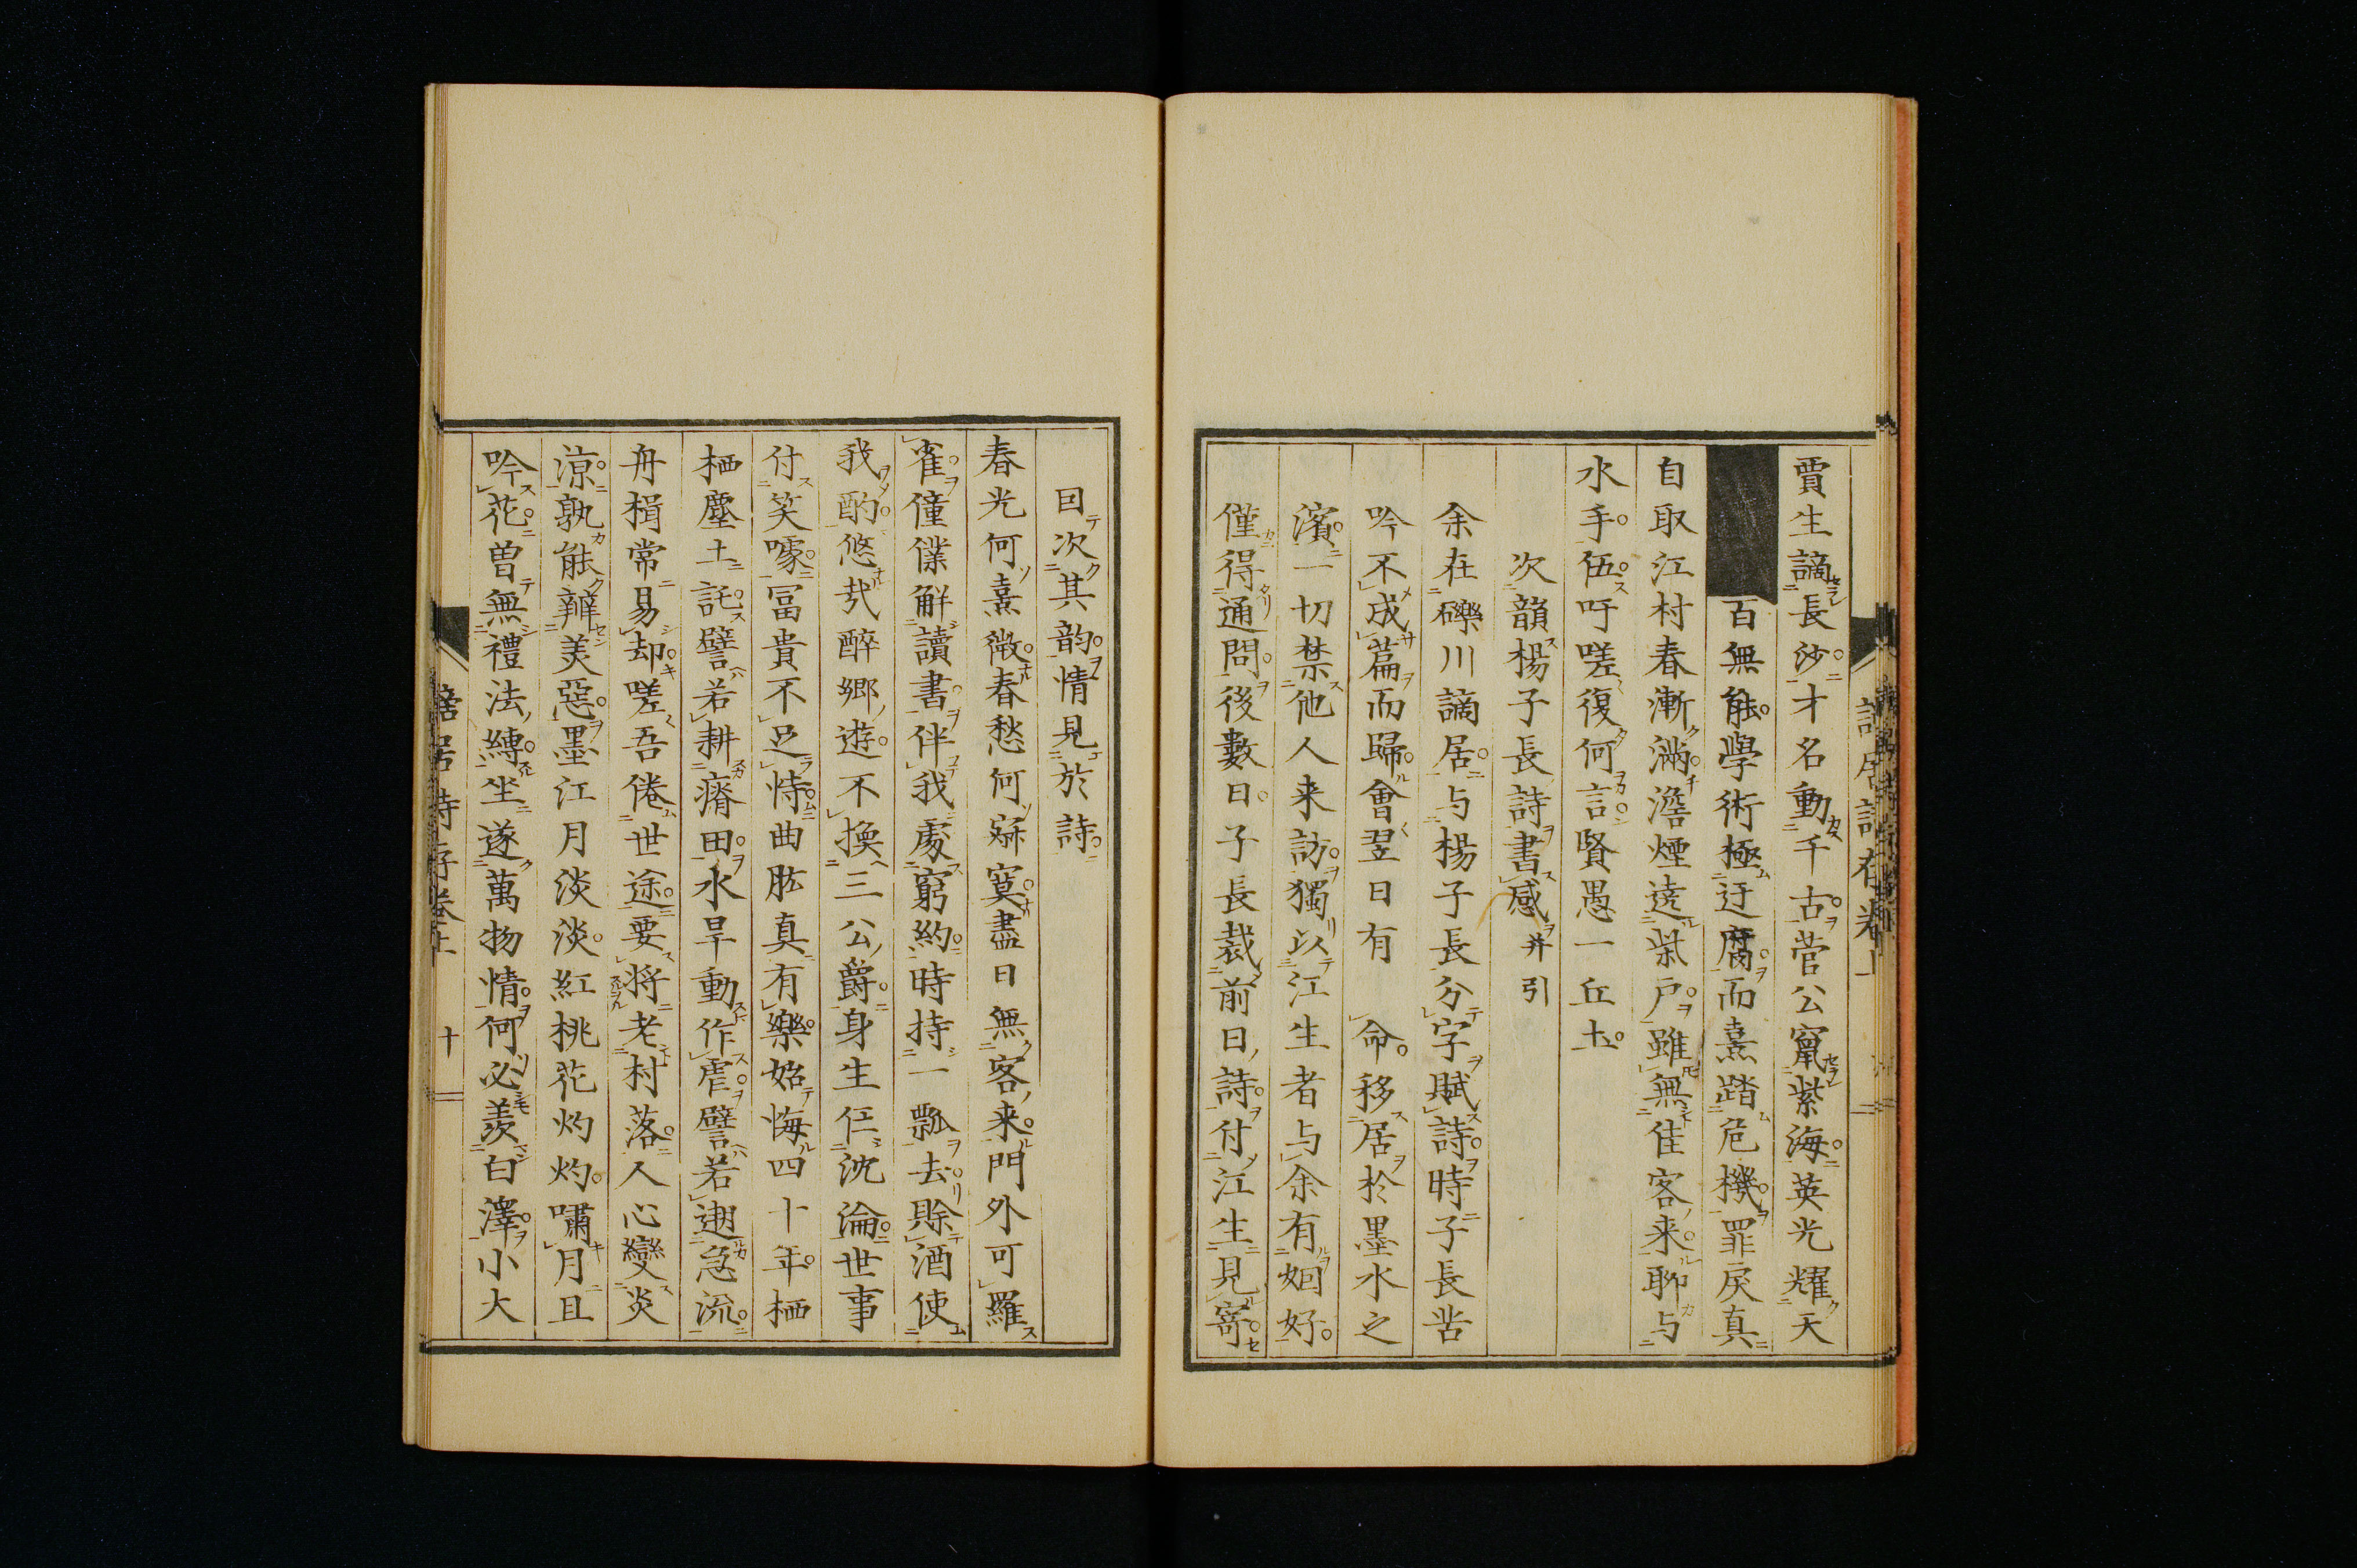 賈生謫長沙才名動千古菅公竄紫海英光耀天
百無能學術極迂腐而熹踏危機罪戻真
自取江村春漸滿澹煙遶柴戸雖無佳客来聊与
水手伍吁嗟復何言賢愚一丘土
次韻楊子長詩書感并引
余在礫川謫居与楊子長分字賦詩時子長苦
吟不成篇而歸會翌日有命移居於墨水之
濱一切禁他人来訪獨以江生者与余有姻好
僅得通問後數日子長裁前日詩付江生見寄
因次其韵情見於詩
春光何熹微春愁何寂寞盡日無客来門外可羅
雀僮僕解讀書伴我處窮約時持一瓢去賖酒使
我酌悠哉醉郷遊不換三公爵身生仁沈淪世事
付笑噱冨貴不足恃曲肱真有樂始悔四十年栖
栖塵土託譬若耕瘠田水旱動作虐譬若遡急流
舟楫常易却嗟吾倦世途要将老村落人心變炎
涼孰能辨美惡墨江月淡淡紅桃花灼灼嘯月且
吟花曽無禮法縛坐遂萬物情何必羨白澤小大
謫居詩存巻上　十